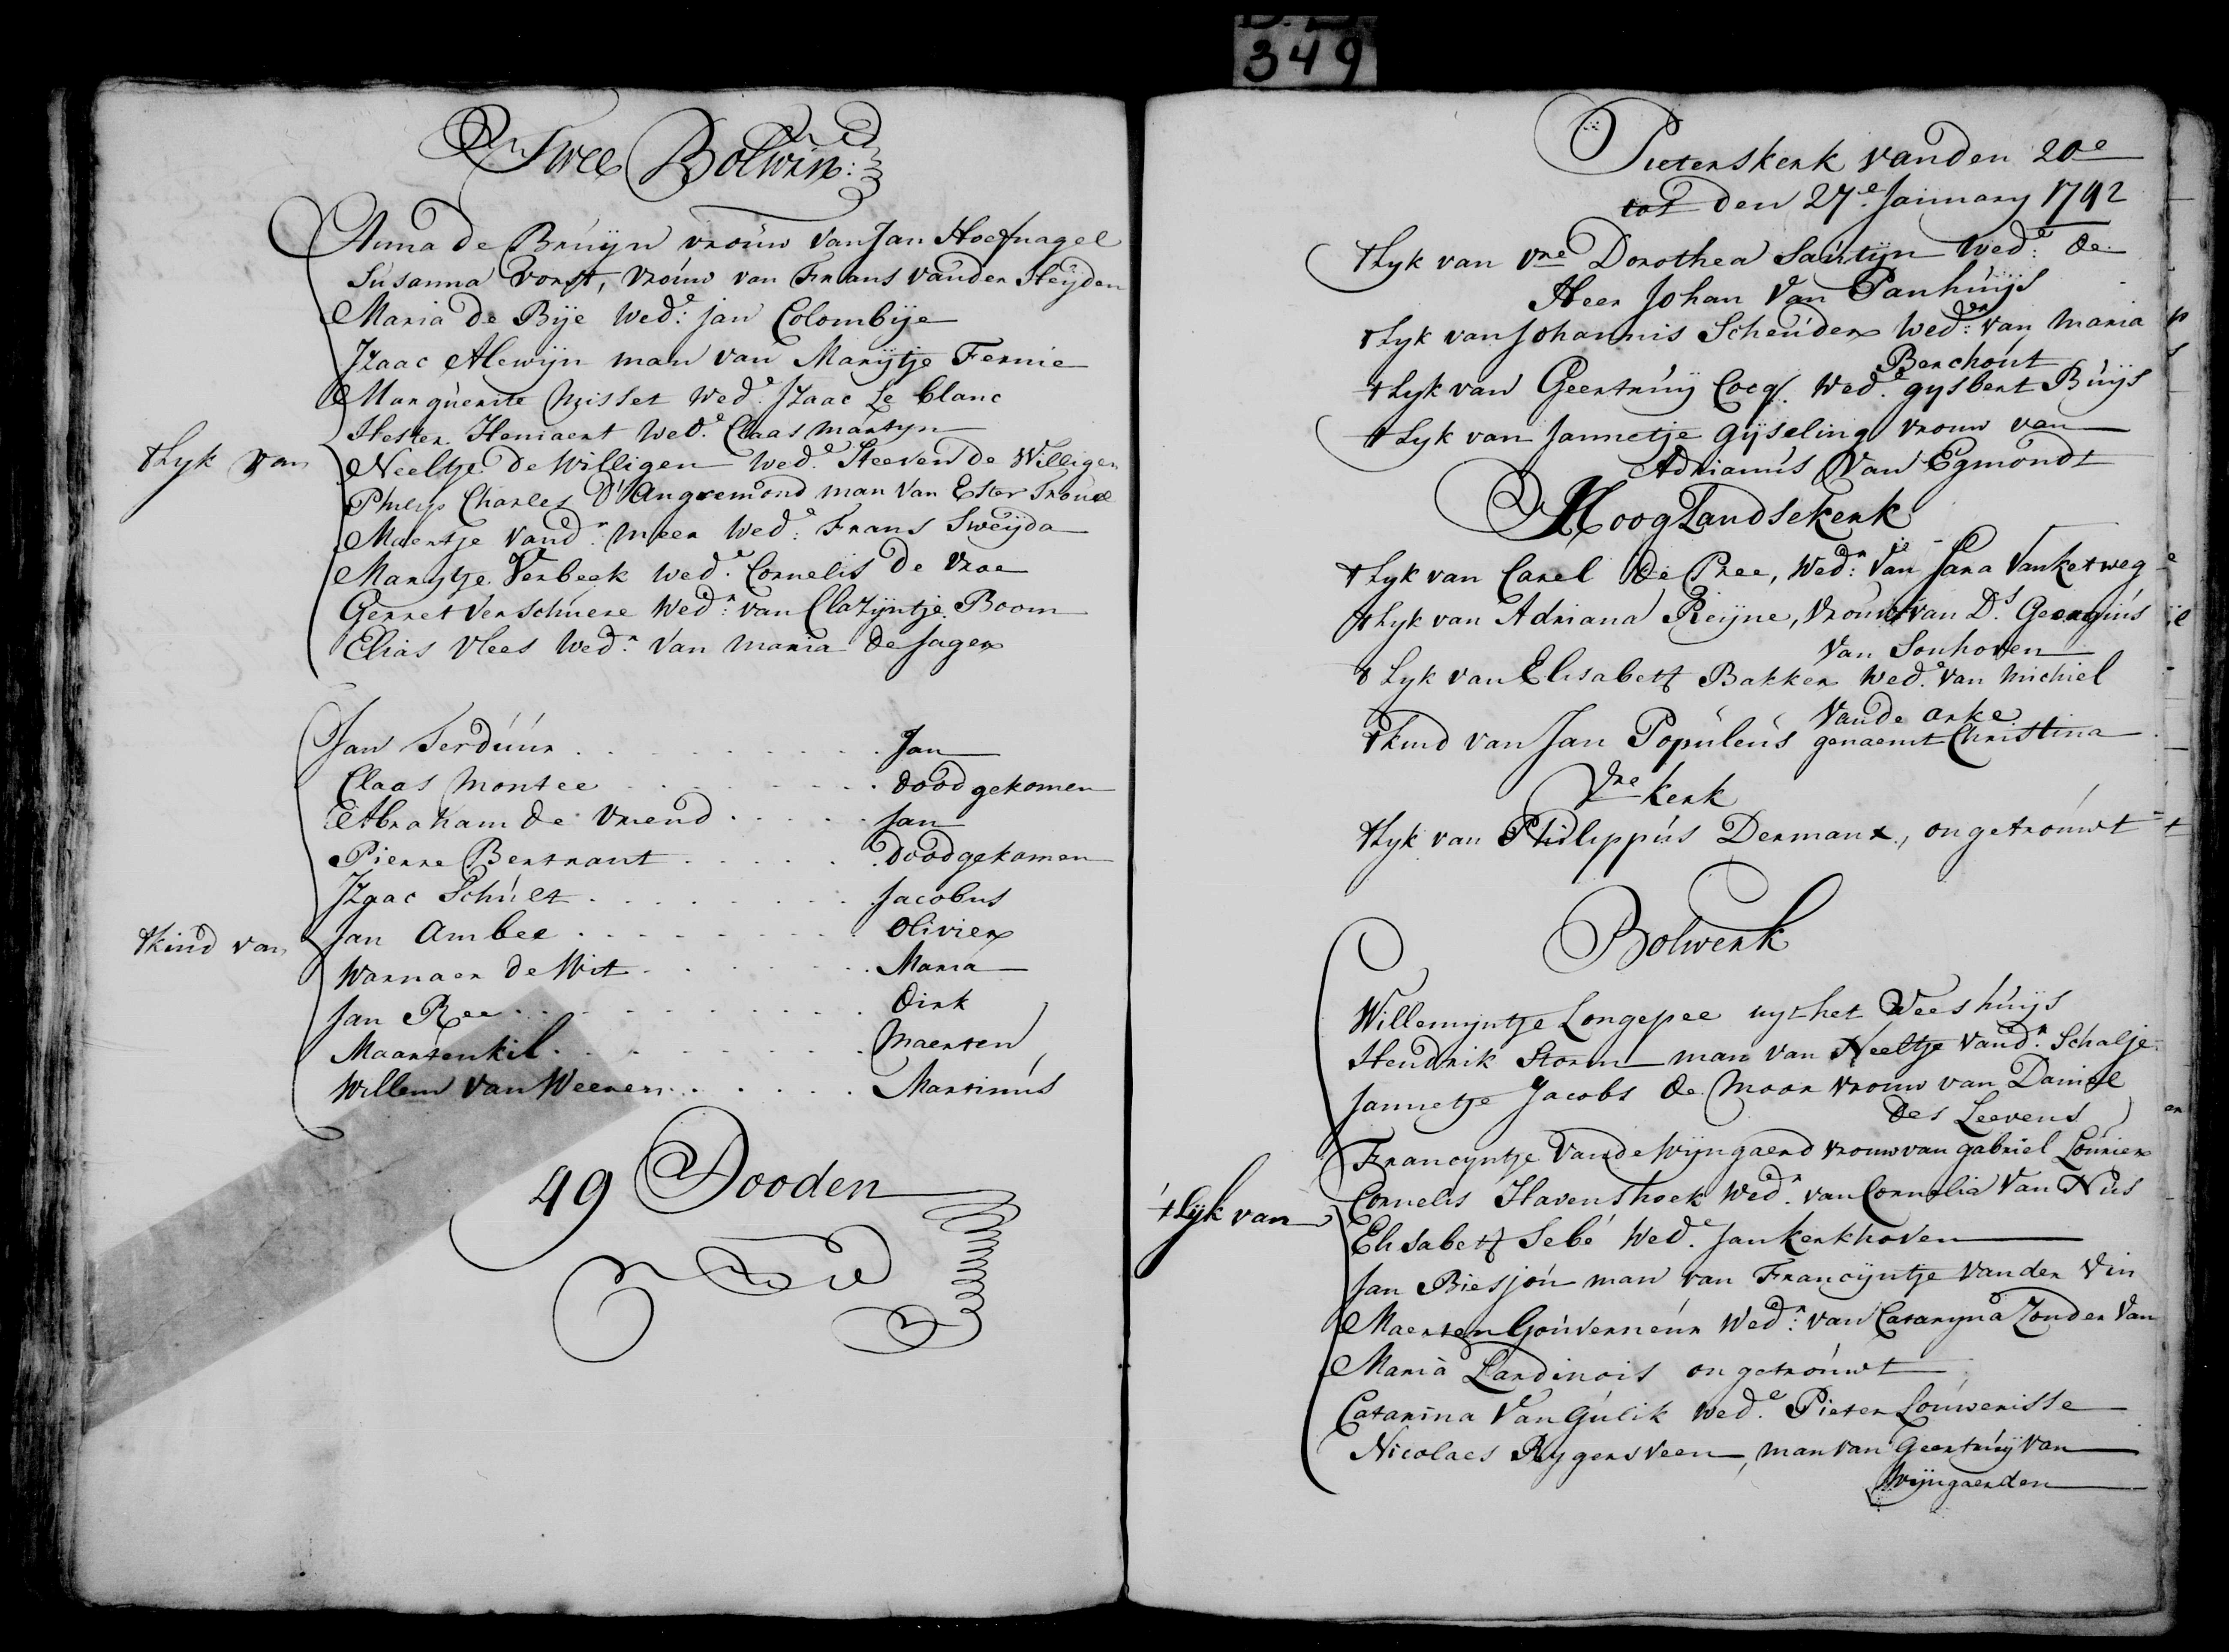 349
Twee Bolwin:
Anna de Bruijn vrouw van Jan Hoefnagel
Susanna Vorst, vrouw van Frans vander Heijden
Maria de Bije Wed:e Jan Colombije
Izaac Alewijn man van Marijtje Fernie
Marguerite Misset Wed.e Izaac Le blanc
Hester Heniaert Wed.e Claas Martyn
t Lyk van
Neeltje De Willigen Wed.e Steeven de Willigen
Philip Charles D'Angremond man van Ester
Maertje vand:r Meer Wed:e Frans Sweijda
Marytje Verbeek Wed.e Cornelis de Vroe
Gerret Verschuere Wed:r van Clazijntje Boom
Elias Vlees Wed:r van Maria de Jager
Jan Serduur . . . . . . . . Jan
Claas Montee . . . . . . . dood gekomen
Abraham de Vriend . . . . . Jan
Pierre Bertrant . . . . . . Doodgekomen
Izaac Schult . . . . . . . . Jacobus
t kind van
Jan Ambee . . . . . . . . Olivier
Warnaer de Wit . . . . . . Maria
Jan Ree . . . . . . . . . . Dirk
Maarten kil . . . . . . . . Maerten
Willem van Weeren . . . . . Martinus
49 Dooden
Pieterskerk vanden 20e
tot den 27.e January 1742
t Lyk van vre Dorothea Sautijn Wed:e de
Heer Johan Van Panhuijs
t Lyk van Johannis Scheuder Wed:r van Maria
Berchout
t Lyk van Geertruij Cocq. Wed.e gysbert Buijs
t Lyk van Jannetje Gijseling vrouw van
Adrianus Van Egmondt
Hooglandsekerk
t Lyk van Carel de Pree, Wed:r Van Sara Vanketweg
t Lyk van Adriana Reijne, Vrouw van D.s Georgius
Van Sonhoven
t Lyk van Elisabett Bakker Wed.e van Michiel
Vande arke
t kind van Jan Populeus genaemt Christina
Vre kerk
t Lyk van Philippus Dermaux, ongetrouwt
Bolwerk
Willemyntje Longepee uyt het Weeshuijs
Hendrik Storm man van Neeltje vand:r Schalje
Jannetje Jacobs de Moor vrouw van Daniel
Des Leevens
Francyntje Vande Wyngaerd vrouw van gabriel Lourier
Cornelis Havenshoek Wed.r van Cornelia Van Nus
t Lyk van
Elisabett Sebé Wed.e Jan kerkhoven
Jan Biesjou man van Francijntje Vander Vin
Maerten Gouverneur Wed:r van Cataryna Zonder Van
Maria Lardinois ongetrouwt
Catarina Van Gulik Wed.e Pieter Louwerisse
Nicolaes Rygersveen, man van Geertruij Van
Wijngaerden